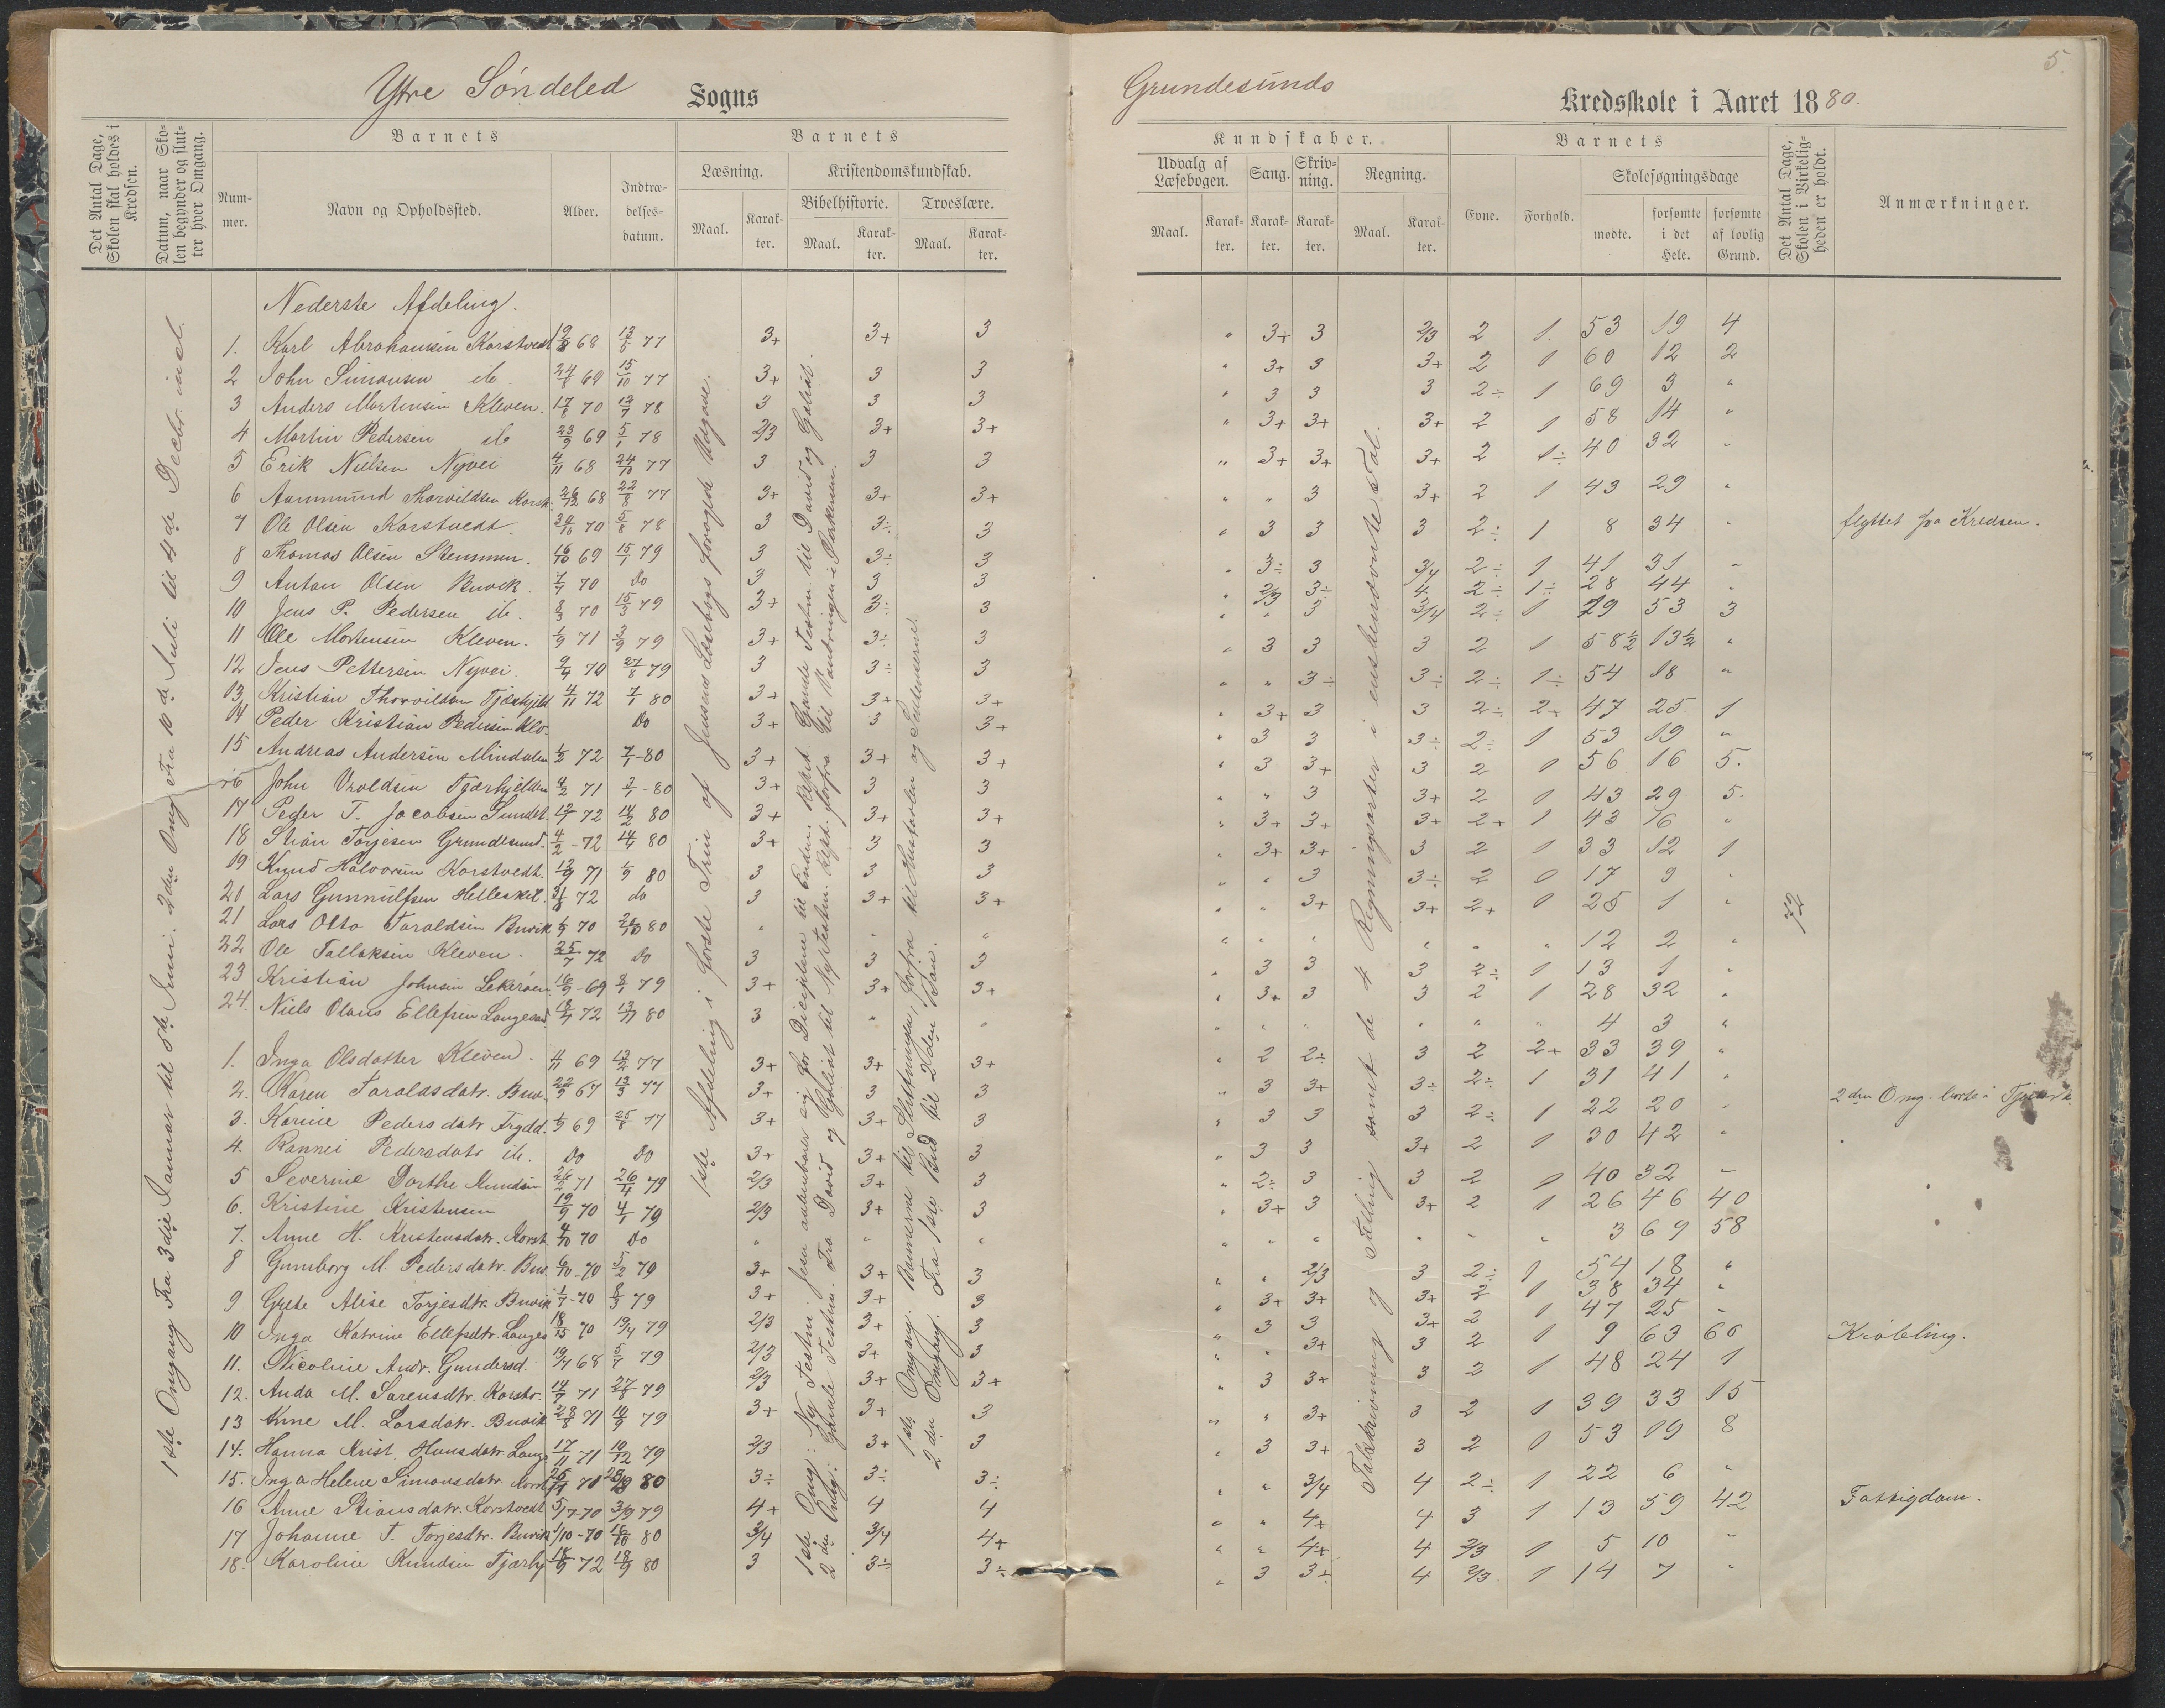 Ytre Søndeled Sogns
Det Antal Dage, Skolen skal holdes i Kredsen.
Datum, naar Skolen begynder og slutter hver Omgang.
Barnets
Nummer.
Navn og Opholdssted.
Alder.
Indtrædelsesdatum.
Barnets
Læsning.
Kristendomskundskab.
Bibelhistorie.
Troeslære.
Maal.
Karakter.
Maal.
Karakter.
Maal.
Karakter.
Nederste Afdeling.
1. Karl Abrahamsen Korstvedt 68 77 3+ 3+ 3
2 John Simonsen ib. 24/8 69 15/10 77 3+ 3 3
3 Anders Mortensen Kleven. 17/8 70 78 3 3 3
4 Martin Pedersen ib 23/9 69 5/1 78 2/3 3+ 3+
5 Erik Nielsen Nyvei 4/11 68 24/10 77 3 3 3
6 Aanmund Thorvildsen Korst. 26/12 68 22/8 77 3+ 3+ 3+
7 Ole Olsen Korstvedt 70 5/8 78 3 3÷ 3
8 Thomas Olsen Stemmen. 16/10 69 15/1 79 3 3÷ 3
9 Anton Olsen Buvik 70 Do 3 3 3
10 Jens P. Pedersen ib. 70 15/3 79 3+ 3÷ 3
11 Ole Mortensen Kleven. 71 79 3+ 3÷ 3
12 Jens Pettersen Nyvei 70 27/8 79 3 3÷ 3
13 Kristian Thorvildsen Tjærhjeld 4/11 72 7/1 80 3+ 3+ 3+
14 Peder Kristian Pedersen Klo. Do 3+ 3 3+
15 Andreas Andersen Mindalen 72 7/1-80 3+ 3+ 3+
16 John Oroldsen Tjærhjelden 4/2 71 -80 3+ 3 3
17 Peder T. Jacobsen Sundet. 72 14/2 80 3+ 3+ 3+
18 Stian Torjesen Grundesund. 4/2-72 80 3+ 3 3
19 Knud Halvorsen Korstvedt. 71 80 3 3 3
20 Lars Gunnulfsen Helleskil. 72 do 3 3+ 3+
21 Lars Otto Taraldsen Buvik 70 80 " " "
22 Ole Tallaksen Kleven. 25/7 72 Do 3 3 3
23 Kristian Johnsen Lekerøen 69 79 3+ 3+ 3+
24. Niels Olaus Ellefsen Langesund 72 80 3 " "
1. Inga Olsdatter Kleven. 4/11 69 77 3+ 3+ 3+
2. Karen Taraldsdatr. Buv. 67 77 3+ 3 3
3. Karine Pedersdatr Frydd. 69 25/8 77 3+ 3+ 3
4. Rannei Pedersdatr ib. Do Do 3+ 3+ 3
5 Severine Dorthe Mundsen 71 26/4 79 2/3 3+ 3
6. Kristine Kristensen 19/9 70 4/1 79 2/3 3+ 3
7. Anne H. Kristensdatr. Korst. 70 Do " " "
8 Gunnborg M. Pedersdatr. Buv. 6/10-70 5/2 79 3+ 3+ 3
9 Grete Alise Torjesdtr. Buvik 1/7-70 8/3 79 3+ 3+ 3
10 Inga Katrine Ellefsdtr. Langes 70 19/4 79 2/3 3+ 3
11. Nicoline Andr. Gundersd. 68 5/7 79 2/3 3+ 3
12. Anda M. Sørensdtr. Korstv. 71 27/8 79 2/3 3+ 3+
13 Anne M. Larsdatr. Buvik 28/8 71 10/9 79 3+ 3+ 3
14. Hanna Krist. Hansdatr Lang. 17/11 71 10/12 79 2/3 3+ 3
15. Inga Helene Simonsdatr. Korst 80 3÷ 3÷ 3÷
16 Anne Stiansdatr. Korstvedt 5/7-70 3/9 79 4+ 4 4
17 Johanne T. Torjesdtr. Buvik 1/10-70 16/10 80 3/4 3/4 4+
18. Karoline Knudsen Tjærhj 18/9 72 18/9 80 3 3÷ 3÷
1ste Omgang Fra 3die Januar til 8de Juni. 2den Omg. Fra 10de Juli til 4de Decbr. incl.
1ste Afdeling i første Trin af Jensens Læsebogs forøgde Udgave.
1ste Omg: Ny Testm: Jesu aabenbarer sig for Diciplene til Enden. Repet. Gamle Testm. til David og Goliat.
2den Omg: Gamle Testm. Fra David og Goliat til Ny Testm. Rept. forfra til Vandringen i Ørkenen.
1ste Omgang. Bønnerne til Slutningen, forfra til Hustavlen og Sentenserne.
2den Omgang. Fra 1ste Bud til 2den Bøn.
5.
Grundesunds Kredsskole i Aaret 1880.
Kundskaber.
Udvalg af Læsebogen.
Sang.
Skrivning.
Regning.
Maal.
Karakter.
Karakter.
Karakter.
Maal.
Karakter.
Barnets
Evne.
Forhold.
Skolesøgningsdage
mødte.
forsømte i det Hele.
forsømte af lovlig Grund.
Det Antal Dage, Skolen i Virkeligheden er holdt.
Anmærkninger.
" 3+ 3 2/3 2 1 53 19 4
" 3+ 3 3+ 2 1 60 12 2
" 3 3 3 2÷ 1 69 3 "
" 3+ 3+ 3+ 2 1 58 14 "
" 3+ 3+ 3+ 2 1÷ 40 32 "
" " 3 3+ 2 1 43 29 "
" 3 3 3 2÷ 1 8 34 " flyttet fra Kredsen.
" 3÷ 3 3/4 2÷ 1 41 31 "
" 2/3 3÷ 4 2÷ 1÷ 28 44 "
" " 3 3/4 2÷ 1 19 53 3
" 3 3 3 2 1 58½ 13½ "
" " 3÷ 3÷ 2÷ 1÷ 54 18 "
" 3+ 3 3 2÷ 2+ 47 25 1
" 3 3 3÷ 2÷ 1 53 19 "
" 3 3+ 3 2 1 56 16 5.
" " 3 3+ 2 1 43 29 5.
" 3+ 3+ 3+ 2+ 1 43 16 "
" 3+ 3+ 3 2 1 33 12 1
" " 3 3÷ 2 1 17 9 "
" " 3+ 3+ 2+ 1 25 1 "
72
" " " " " " 12 2 "
" 3 3 3 2÷ 1 13 1 "
" 3+ 3 3 2 1 28 32 "
" " " " " " 4 3 "
" 2 2÷ 3 2 2+ 33 39 "
" 3 3+ 3÷ 2÷ 1 31 41 "
" 3 3 3 2÷ 1 22 20 " 2den Omg. borte i
" 3 3 3+ 2 1 30 42 "
" 2÷ 3 3 2 1 40 32 "
" 3+ 3 3+ 2 1 26 46 40
" " " " " " 3 69 58
" " 2/3 3 2÷ 1 54 18 "
" 3+ 3+ 3+ 2 1 38 34 "
" 3 3 3+ 2 1 47 25 "
" " 3+ 3 2 1 9 63 60 Krøbling.
" 3 3+ 3 2 1 48 24 1
" " 3+ 3 2 1 39 33 15
" 3 3+ 3 2 1 53 19 8
" " 3/4 4 2÷ 1 22 6 "
" " 4+ 4 3 1 13 59 42 Fattigdom.
" " 4+ 4 2/3 1 5 10 "
" 3 3÷ 4 2/3 1 14 7 "
Takskrivning og Tælling samt de 4 Regningsarter i eensbenævnte Tal.